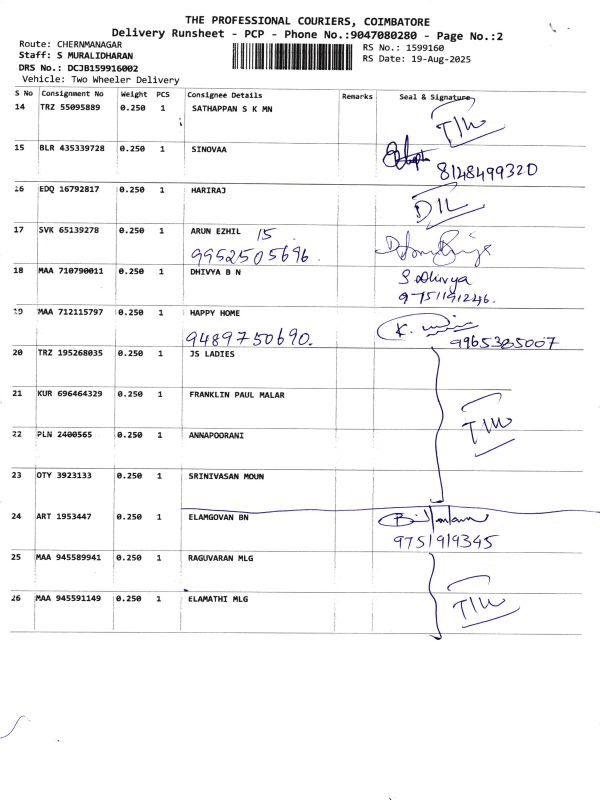 THE PROFESSIONAL COURIERS, COIMBATORE
Delivery Runsheet - PCP - Phone No.:9047080280 - Page No.:2
Route: CHERNMANAGAR
Staff: S MURALIDHARAN
DRS No.: DCJB159916002
Vehicle: Two Wheeler Delivery
RS No.: 1599160
RS Date: 19-Aug-2025
S No Consignment No Weight PCS Consignee Details Remarks Seal & Signature
14 TRZ 55095889 0.250 1 SATHAPPAN S K MN
15 BLR 435339728 0.250 1 SINOVAA
8148499320
16 EDQ 16792817 0.250 1 HARIRAJ
DIL
17 SVK 65139278 0.250 1 ARUN EZHIL 15
9952505696.
18 MAA 710790011 0.250 1 DHIVYA B N S Dhivya
9751191246.
19 MAA 712115797 0.250 1 HAPPY HOME
9489750690. 9965385007
20 TRZ 195268035 0.250 1 JS LADIES
21 KUR 696464329 0.250 1 FRANKLIN PAUL MALAR
22 PLN 2400565 0.250 1 ANNAPOORANI
23 OTY 3923133 0.250 1 SRINIVASAN MOUN
24 ART 1953447 0.250 1 ELAMGOVAN BN
9751919345
25 MAA 945589941 0.250 1 RAGUVARAN MLG
26 MAA 945591149 0.250 1 ELAMATHI MLG